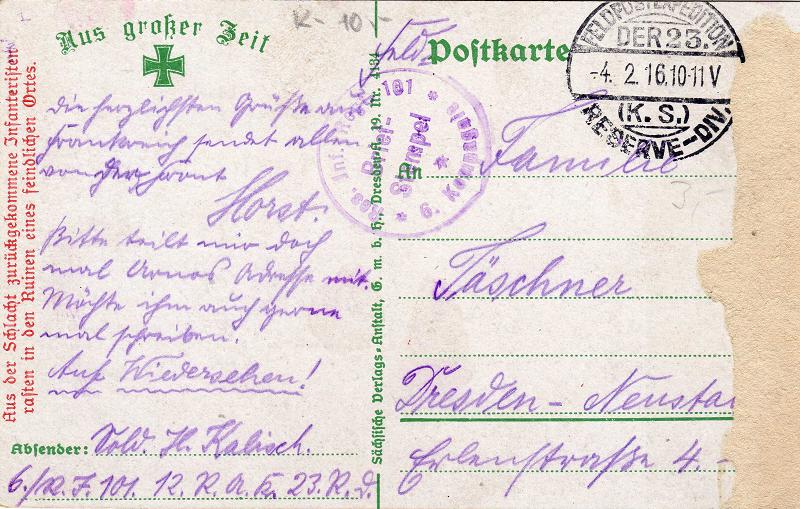 K- 10,-
Aus großer Zeit
Feld-
Postkarte
FELDPOSTEXPEDITION
DER 23.
-4. 2. 16. 10-11 V
(K. S.)
RESERVE-DIV.
Aus der Schlacht zurückgekommene Infanteristen
rasten in den Ruinen eines feindlichen Ortes.
die herzlichsten Grüße aus
Frankreich sendet allen
von der Front
Horst.
Bitte teilt mir doch
mal Arnos Adresse mit.
Möchte ihm auch gerne
mal schreiben.
Auf Wiedersehen!
Absender: Sold. H. Kalisch.
6./R. J. 101. 12. R. A. K. 23. R. D.
Sächsische Verlags-Anstalt, G. m. b. H., Dresden-A. 19. Nr. 4134
Res. Inf. 101
Brief-
Stempel
* 6. Kompagnie *
An Familie
3,-
Täschner
Dresden- Neusta
Erlenstraße 4.-